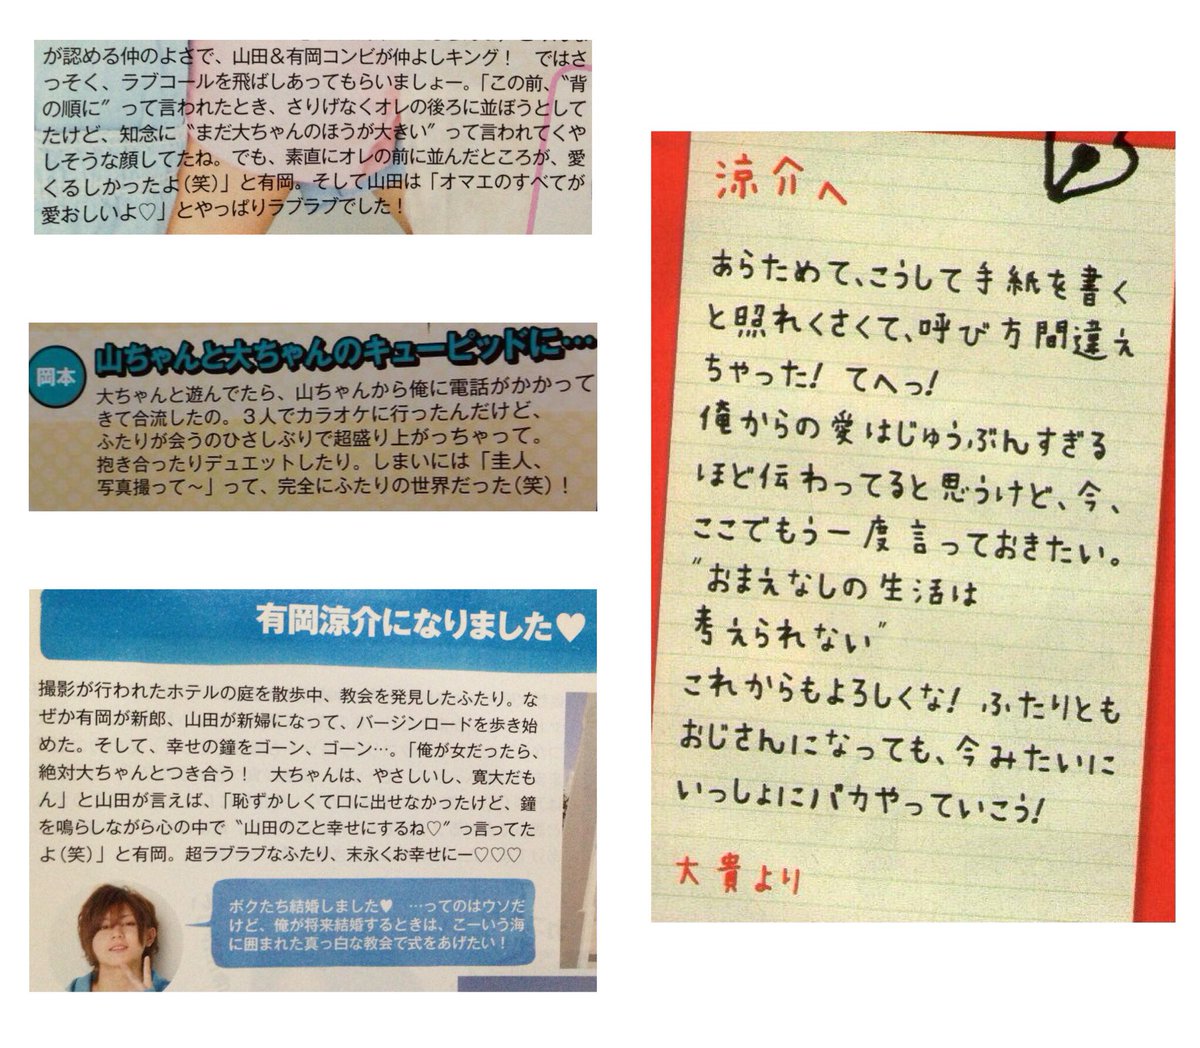 が認める仲のよさで、山田＆有岡コンビが仲よしキング！　ではさ
っそく、ラブコールを飛ばしあってもらいましょー。「この前、〝背
の順に〟って言われたとき、さりげなくオレの後ろに並ぼうとして
たけど、知念に〝まだ大ちゃんのほうが大きい〟って言われてくや
しそうな顔してたね。でも、素直にオレの前に並んだところが、愛
くるしかったよ（笑）」と有岡。そして山田は「オマエのすべてが
愛おしいよ♡」とやっぱりラブラブでした！
岡本
山ちゃんと大ちゃんのキューピッドに…
大ちゃんと遊んでたら、山ちゃんから俺に電話がかかって
きて合流したの。３人でカラオケに行ったんだけど、
ふたりが会うのひさしぶりで超盛り上がっちゃって。
抱き合ったりデュエットしたり。しまいには「圭人、
写真撮って〜」って、完全にふたりの世界だった（笑）！
有岡涼介になりました♥
撮影が行われたホテルの庭を散歩中、教会を発見したふたり。な
ぜか有岡が新郎、山田が新婦になって、バージンロードを歩き始
めた。そして、幸せの鐘をゴーン、ゴーン…。「俺が女だったら、
絶対大ちゃんとつき合う！　大ちゃんは、やさしいし、寛大だも
ん」と山田が言えば、「恥ずかしくて口に出せなかったけど、鐘
を鳴らしながら心の中で〝山田のこと幸せにするね♡〟っ言ってた
よ（笑）」と有岡。超ラブラブなふたり、末永くお幸せにー♡♡♡
ボクたち結婚しました♥　…ってのはウソだ
けど、俺が将来結婚するときは、こーいう海
に囲まれた真っ白な教会で式をあげたい！
涼介へ
あらためて、こうして手紙を書く
と照れくさくて、呼び方間違え
ちゃった！てへっ！
俺からの愛はじゅうぶんすぎる
ほど伝わってると思うけど、今、
ここでもう一度言っておきたい。
〝おまえなしの生活は
考えられない〟
これからもよろしくな！ふたりとも
おじさんになっても、今みたいに
いっしょにバカやっていこう！
大貴より